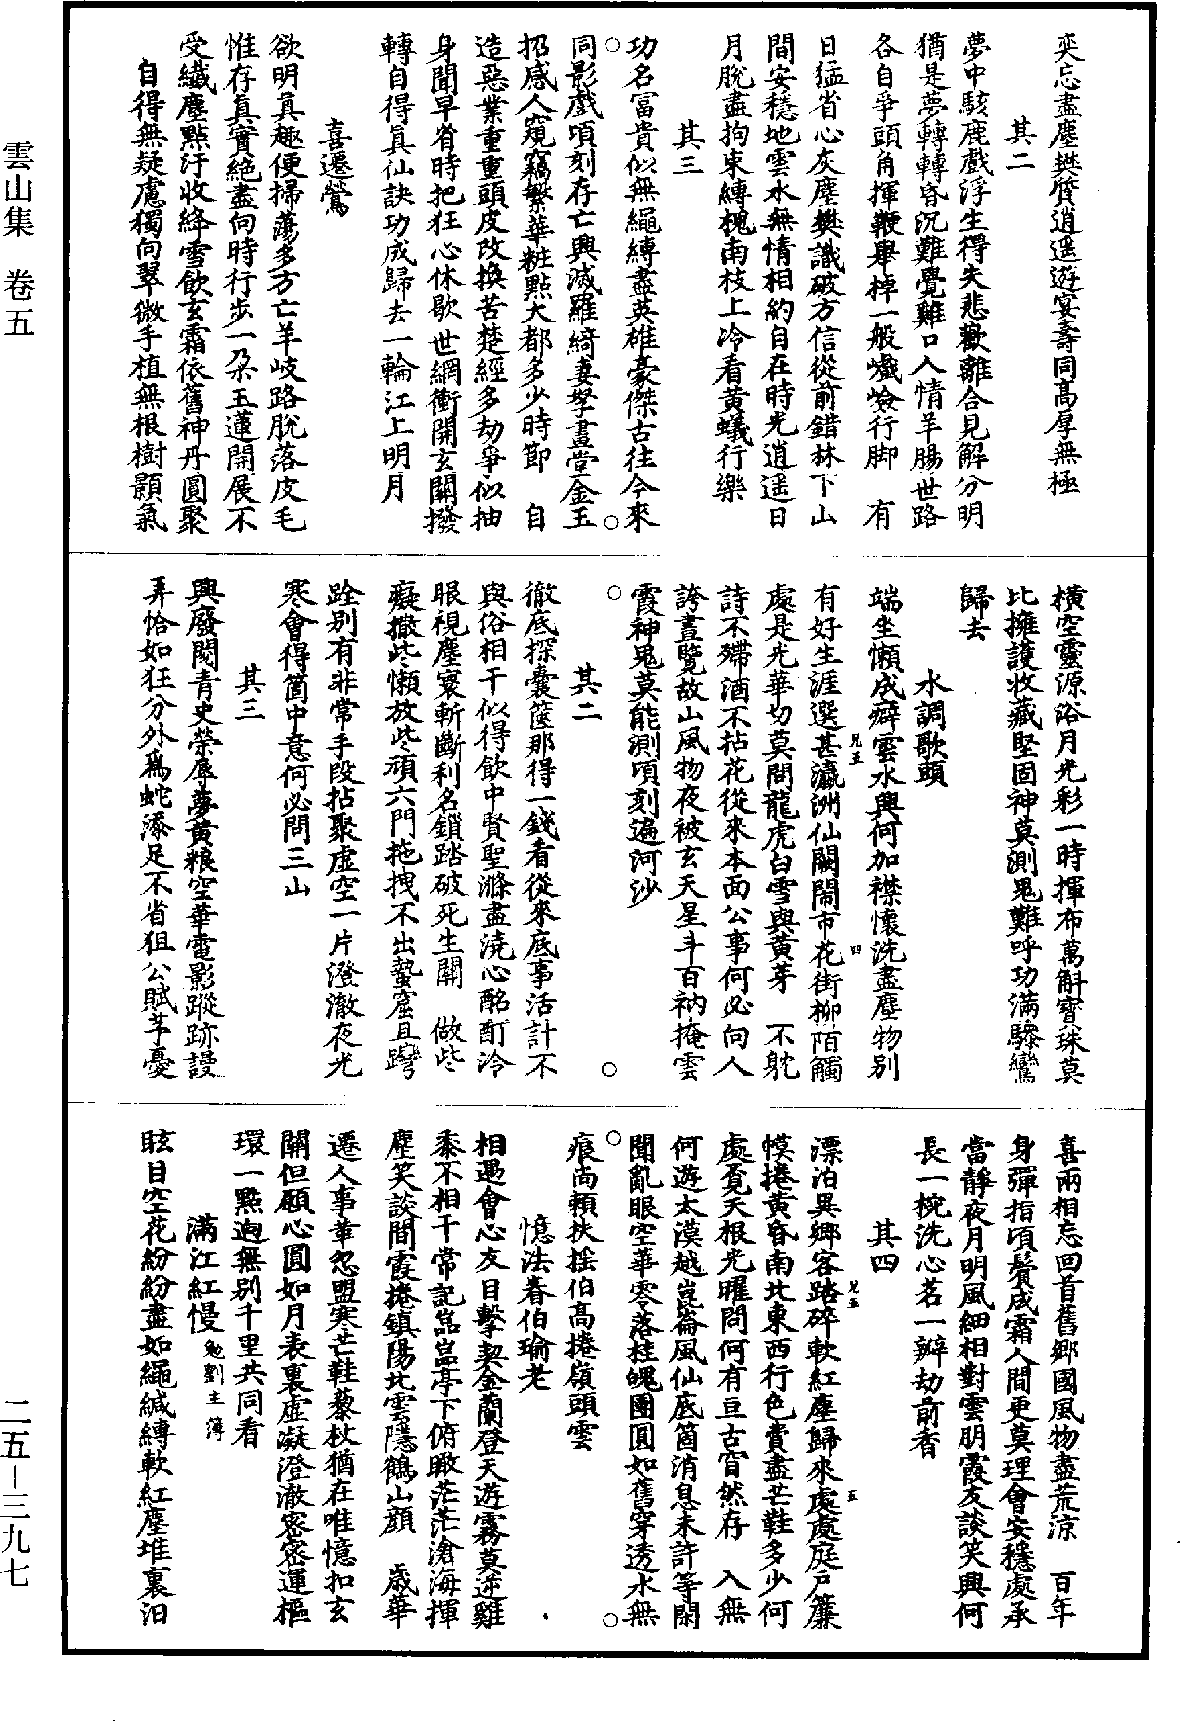 雲山集　卷五
二五—三九七
奕忘盡塵樊質逍遥遊宴壽同高厚無極
其二
夢中駭鹿戲浮生得失悲歡離合見解分明
猶是夢轉轉昏沉難覺難口人情羊腸世路
各自爭頭角揮鞭舉棹一般巇嶮行脚　有
日猛省心灰塵樊識破方信從前錯林下山
間安穩地雲水無情相約自在時光逍遥日
月脫盡拘束縛槐南枝上冷看黃蟻行樂
其三
功名富貴似無繩縛盡英雄豪傑古往今來
同影戲頃刻存亡興滅羅綺妻孥畫堂金玉
招感人窺竊繁華粧點大都多少時節　自
造惡業重重頭皮改換苦楚經多劫爭似抽
身聞早省時把狂心休歇世網衝開玄關撥
轉自得真仙訣功成歸去一輪江上明月
喜遷鶯
欲明真趣便掃蕩多方亡羊岐路脫落皮毛
惟存真實絶盡向時行步一朶玉蓮開展不
受纖塵點汙收絳雪飲玄霜依舊神丹圓聚
自得無疑慮獨向翠微手植無根樹顥氣
橫空靈源浴月光彩一時揮布萬斛寶珠莫
比擁護收藏堅固神莫測鬼難呼功滿驂鸞
歸去
水調歌頭
端坐懶成癖雲水興何加襟懷洗盡塵物別
有好生涯選甚瀛洲仙闕鬧市花街柳陌觸
處是光華切莫問龍虎白雪與黃芽　不躭
詩不殢酒不拈花從來本面公事何必向人
誇晝覽故山風物夜被玄天星斗百衲掩雲
霞神鬼莫能測頃刻遍河沙
其二
徹底探囊篋那得一錢看從來底事活計不
與俗相干似得飲中賢聖滌盡澆心酩酊冷
眼視塵寰斬斷利名鎖踏破死生關　做些
癡撒些懶放些頑六門拖拽不出蟄窟且蹣
跧別有非常手段拈聚虛空一片澄澈夜光
寒會得箇中意何必問三山
其三
興廢閱青史榮辱夢黃粮空華電影蹤跡謾
弄恰如狂分外爲蛇添足不省狙公賦芧憂
喜兩相忘回首舊鄉國風物盡荒涼　百年
身彈指頃鬢成霜人間更莫理會安穩處承
當靜夜月明風細相對雲朋霞友談笑興何
長一椀洗心茗一瓣劫前香
其四
漂泊異鄉客踏碎軟紅塵歸來處處庭戶簾
幙捲黃昏南北東西行色費盡芒鞋多少何
處覓天根光曜問何有亘古窅然存　入無
何遊太漠越崑崙風仙底箇消息未許等閑
聞亂眼空華零落桂魄團圓如舊穿透水無
痕尚賴扶搖伯高捲嶺頭雲
憶法眷伯瑜老
相遇會心友目擊契金蘭登天遊霧莫逆雞
黍不相干常記嵓嵓亭下俯瞰茫茫滄海揮
麈笑談間霞捲鎮陽北雲隱鶴山顔　歲華
遷人事華忽盟寒芒鞋藜杖猶在唯憶扣玄
關但願心圓如月表裏虛凝澄澈密密運樞
環一點迥無別千里共同看
滿江紅慢勉劉主簿
眩目空花紛紛盡如繩緘縛軟紅塵堆裏汨